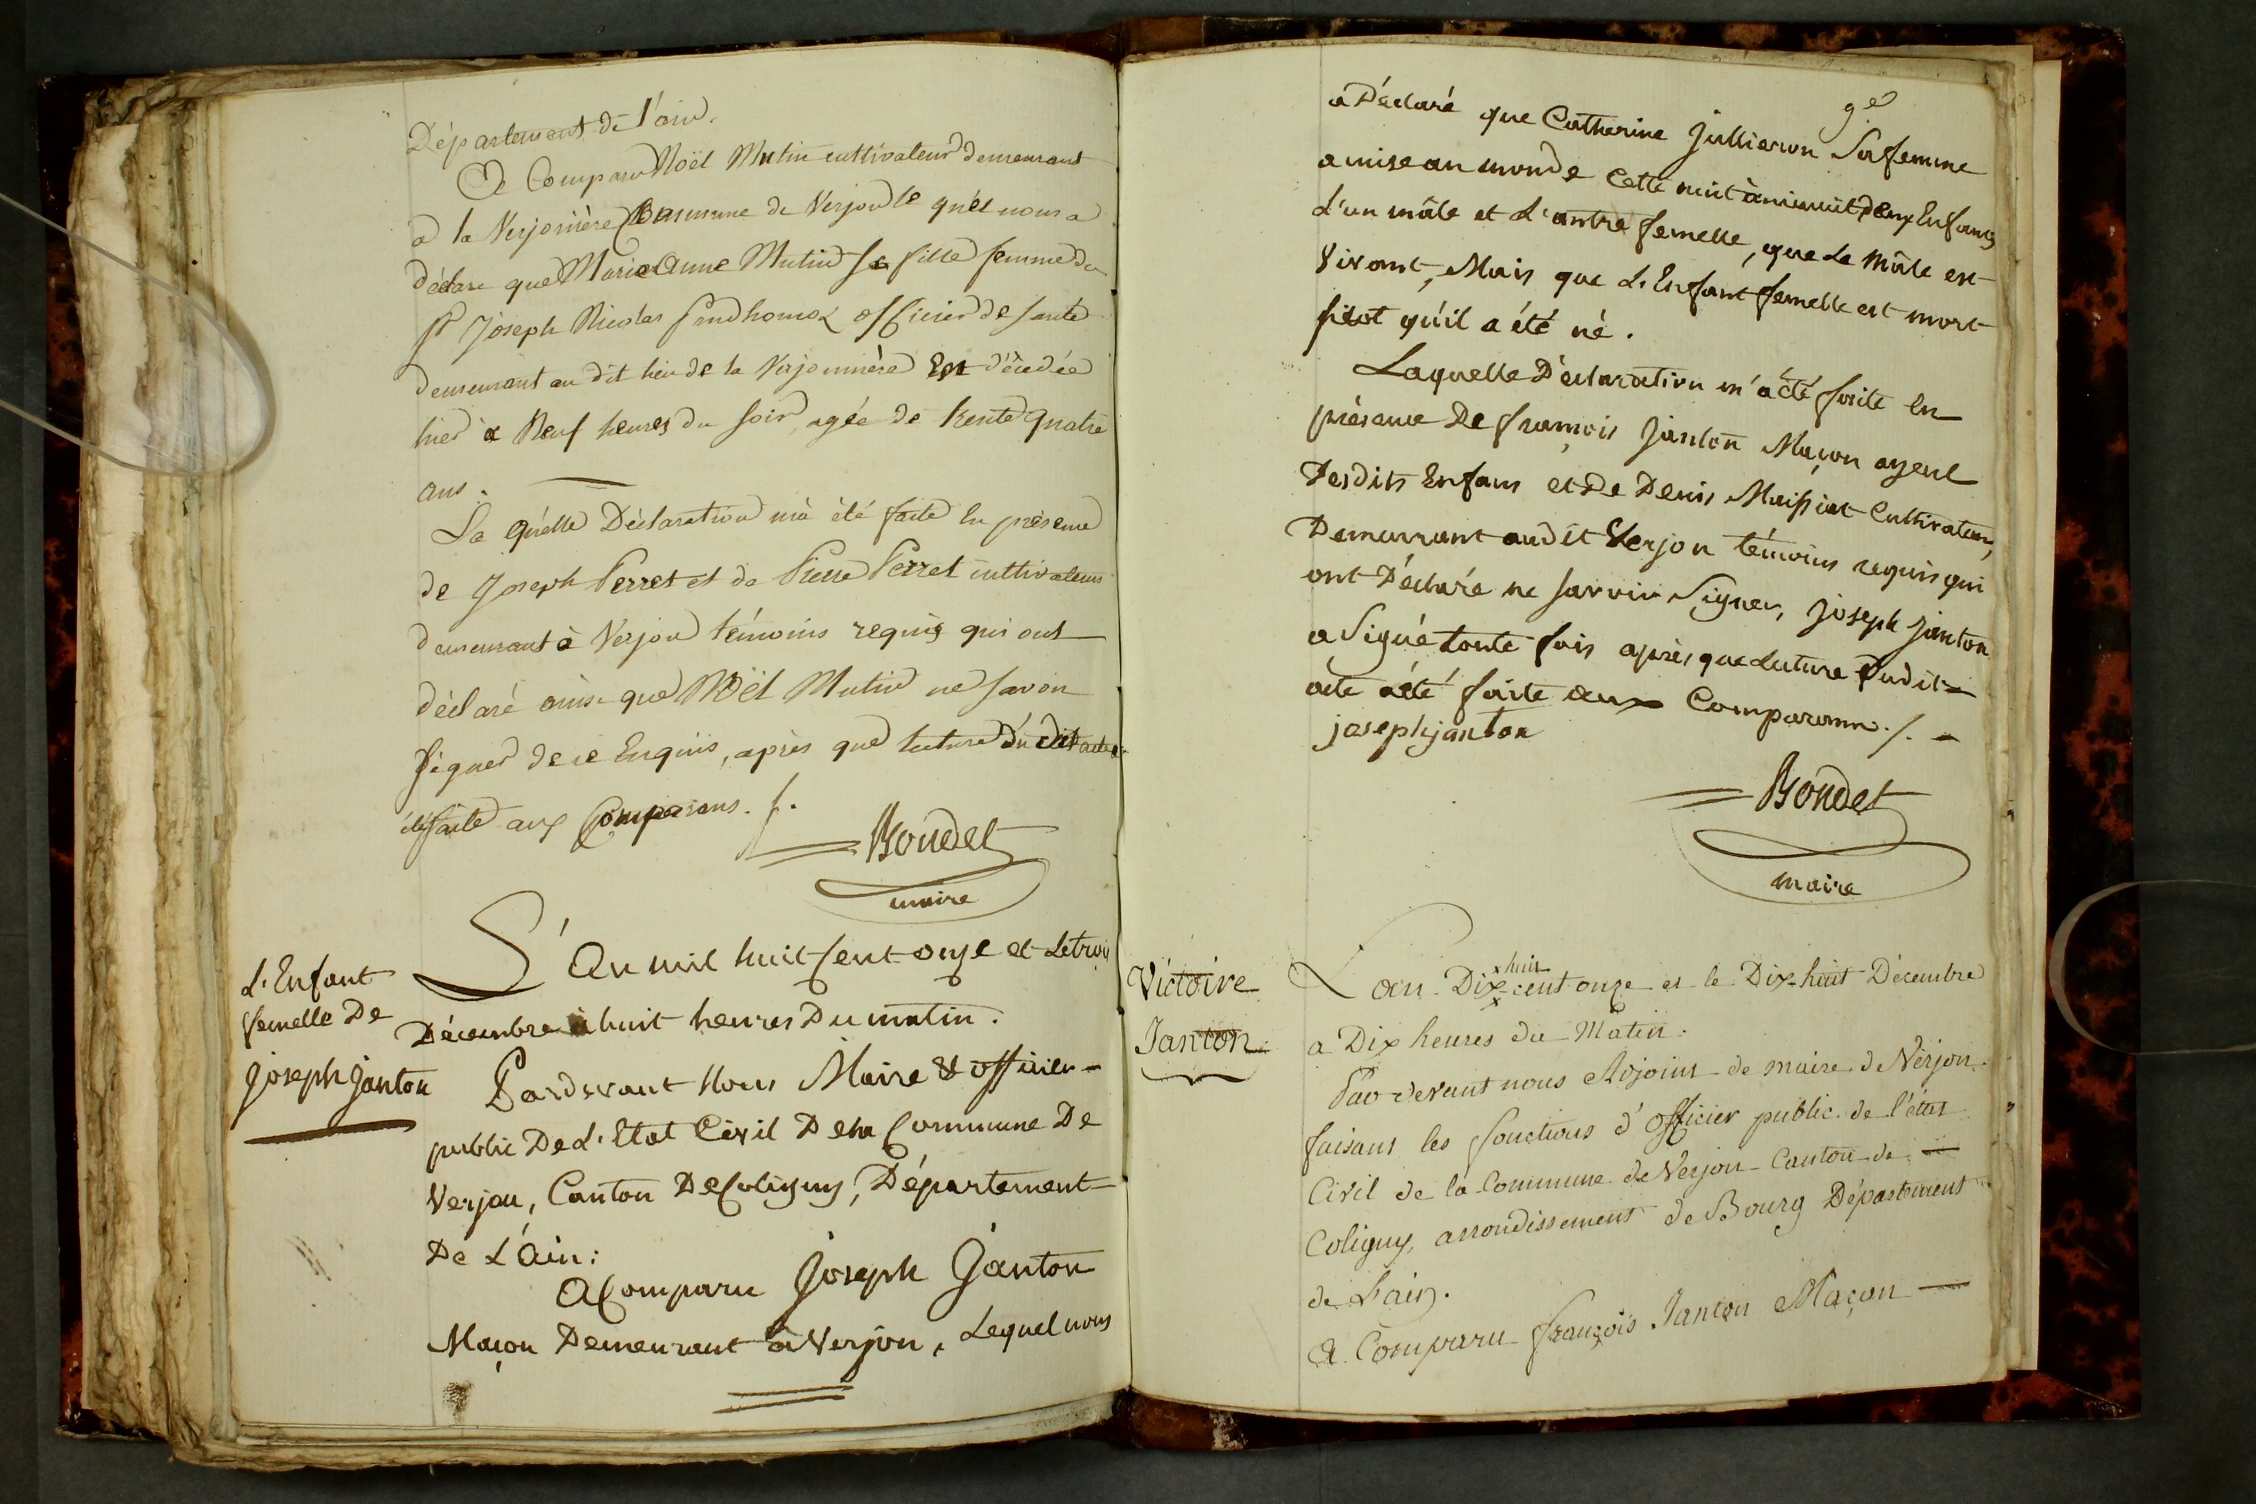 Département de l'ain.
A Comparu Noël Mutin cultivateur demeurant
a la Verjonière Commune de Verjon le qu'el nous a
déclare que Marie Anne Mutin sa fille femme du
Sr Joseph Nicolas prudhome officier de santé
demeurant au dit lieu de la Verjonnière Est décédée
hier à Neuf heures du soir, agée de trente quatre
ans.
La qu'elle Déclaration m'à été faite en présence
de Joseph Perret et de Pierre Perret cultivateurs
demeurant à Verjon témoins requis qui ont
déclaré ainsi que Noël Mutin ne savoir
signer de ce Enquis, après que lecture du dit acte
été faite aux Comparans. /.
Bondet
maire
L'Enfant
femelle De
Joseph Janton
L'An mil huit cent onze et Le trois
Décembre à huit heures Du matin.
Pardevant Nous Maire & officier
public De L'Etat Civil De la Commune De
Verjon, Canton De Coligny, Département
De L'Ain:
A Comparu Joseph Janton
Maçon Demeurant à Verjon, Lequel nous
ge
a Déclaré que Catherine Jullieron Sa femme
a mise au monde Cette nuit à minuit deux Enfants
L'un mâle et L'autre femelle, que Le Mâle est
Vivant, Mais que L'Enfant femelle est mort
sitot qu'il a été né.
Laquelle Déclaration m'a été faite En
présence De françois Janton Maçon ayeul
Desdits Enfans et De Denis Maissiat Cultivateur,
Demeurrant audit Verjon témoins requis qui
ont Déclaré ne savoir Signer, Joseph Janton
a Signé toute fois après que Lecture Dudit
acte a été faite aux Comparans. /.
joseph janton
Bondet
maire
Victoire
Janton
L'an Dix huit cent onze et le Dix huit Décembre
a Dix heures du Matin.
Par devant nous Adjoint de maire de Verjon
faisant les fonctions d'Officier public de l'état
Civil de la Commune de Verjon Canton de
Coligny, arrondissement de Bourg Département
de L'ain.
A Comparu françois Janton Maçon